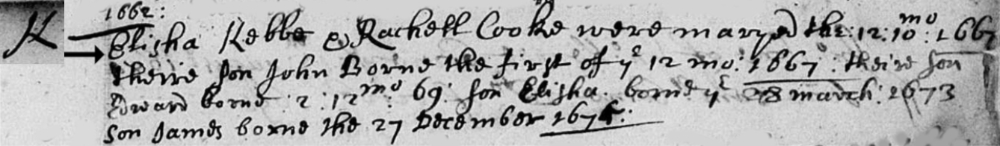 1662:
K
Elisha Kebbe & Rachell Cooke were maryed the: 12: 10: mo 1667
theire son John Borne the first of ye 12 mo: 1667: theire son
Edward borne 2: 12 mo: 69: son Elisha. borne ye 28 march: 1673
son James borne the 27 December